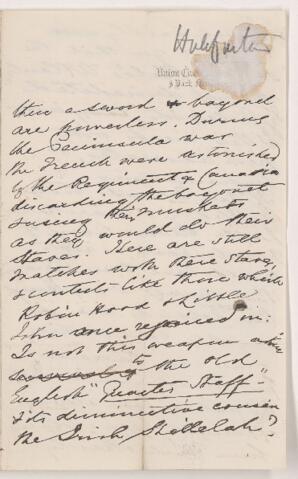 Union C
then a sword & bayonet
are powerless. During
the Peninsula war
the French were astonished
by the Regiment of
discarding the bayonet
& using their muskets
as they would do their
staves. There are still
matches with these staves,
& contests like those which
Robin Hood & Little
John once rejoiced in:
Is not this weapon akin
to the old
English "Quarter Staff"-
& its diminutive cousin
the Irish Shillelah?